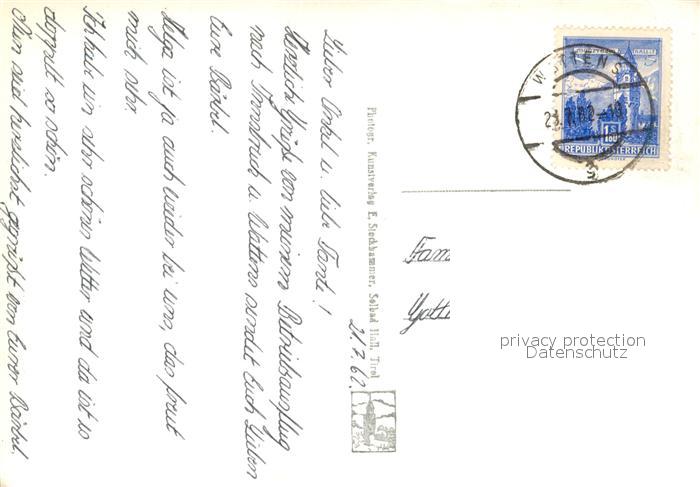 21.7.62.
Lieber Onkel u. liebe Tante!
Herzliche Grüße von meinem Betriebsausflug
nach Innsbruck u. Wattens sendet Euch Lieben
Eure Bärbel.
Helga ist ja auch wieder bei uns, das freut
mich sehr.
Ich habe ein sehr schönes Wetter und da ist es
doppelt so schön.
Nun seid herzlichst gegrüßt von Eurer Bärbel.
Photogr. Kunstverlag E. Stockhammer, Solbad Hall, Tirol
WATTENS
MÜNZTURM HALL
1S
80
REPUBLIK ÖSTERREICH
Fam
Gott
privacy protection
Datenschutz